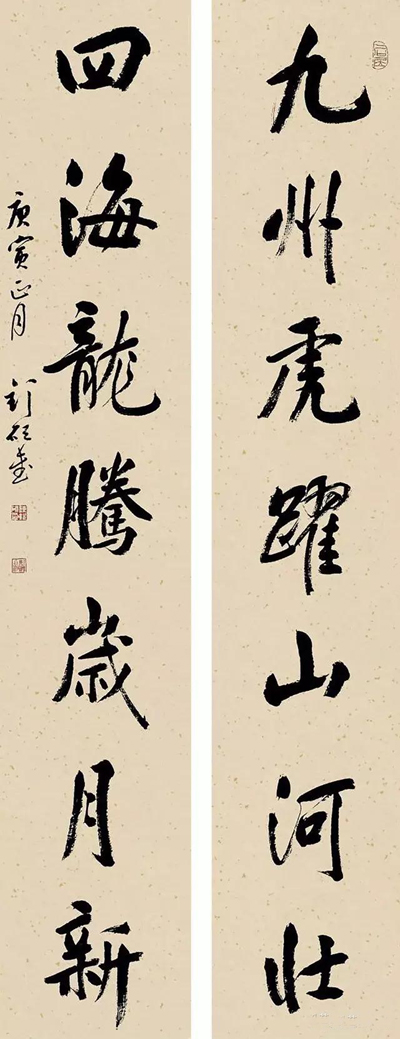 九州虎躍山河壯
四海龍騰歲月新
庚寅正月